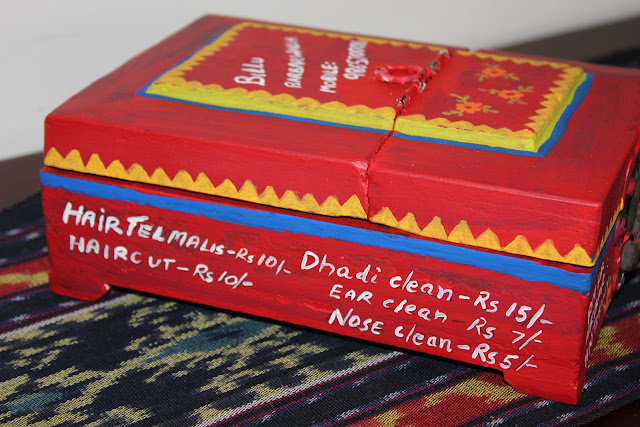 Billu
MOBLE:
HAIR TELMALIS-Rs10/-
HAIRCUT-Rs10/-
Dhadi clean-Rs 15/-
EAR clean-Rs 7/-
NOSE clean-Rs5/-